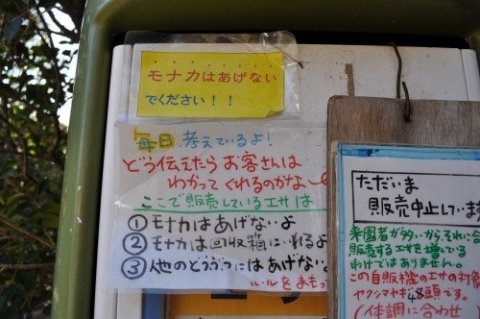 モナカはあげない
でください！！
毎日 考えているよ！
どう伝えたら お客さんは
わかってくれるのかな〜
ここで販売しているエサは
①モナカはあげないよ
②モナカは回収箱にいれるよ
③他のどうぶつにはあげないよ
ルールをまもって
ただいま
販売中止しています
来園者が多いからそれに合
販売するエサを増している
わけではありません。
この自販機のエサの対象
ヤクシマヤギ48頭です。
(体調に合わせ